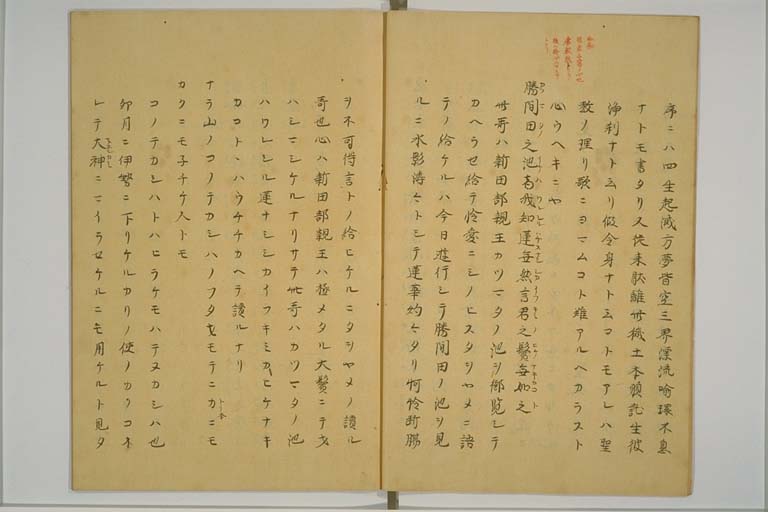 序ニハ四生起滅方夢皆空三界漂流喩環不息
ナトモ書タリ又従来厭離此穢土本願託生彼
浄刹ナト云リ仮令身ナト云コトモアレハ聖
教ノ理リ歌ニヨマムコト难アルヘカラスト
心ウヘキニや
勝間田之池者我知蓮無然言君之鬚無如之
此哥ハ新田部親王カツマタノ池ヲ御覧シテ
カヘラせ給テ怜愛ニシノヒスタヲヤメニ語
テノ給ケルハ今日遊行シテ勝間田ノ池ヲ見
ルニ水影涛々トシテ蓮華灼々タリ何怜断腸
ヲ不可得言トノ給ヒケルニタヲヤメノ讀ル
哥也心ハ新田部親王ハ極メタル大鬚ニテ
ハシマシケルナリサテ此哥ハカツマタノ池
ハワレシル蓮ナシシカイフキミカヒケナキ
カコトヽハウチチカヘテ讀ルナリ
ナラ山ノコノテカシハノフタオモテニカニモ
カクニモ子チケ人トモ
コノテカシハトハヒラケモハテヌカシハ也
卯月ニ伊勢ニ下リケルカリノ使ノカクコネ
レテ大神ニマイラせケルニモ用ケルト見タ